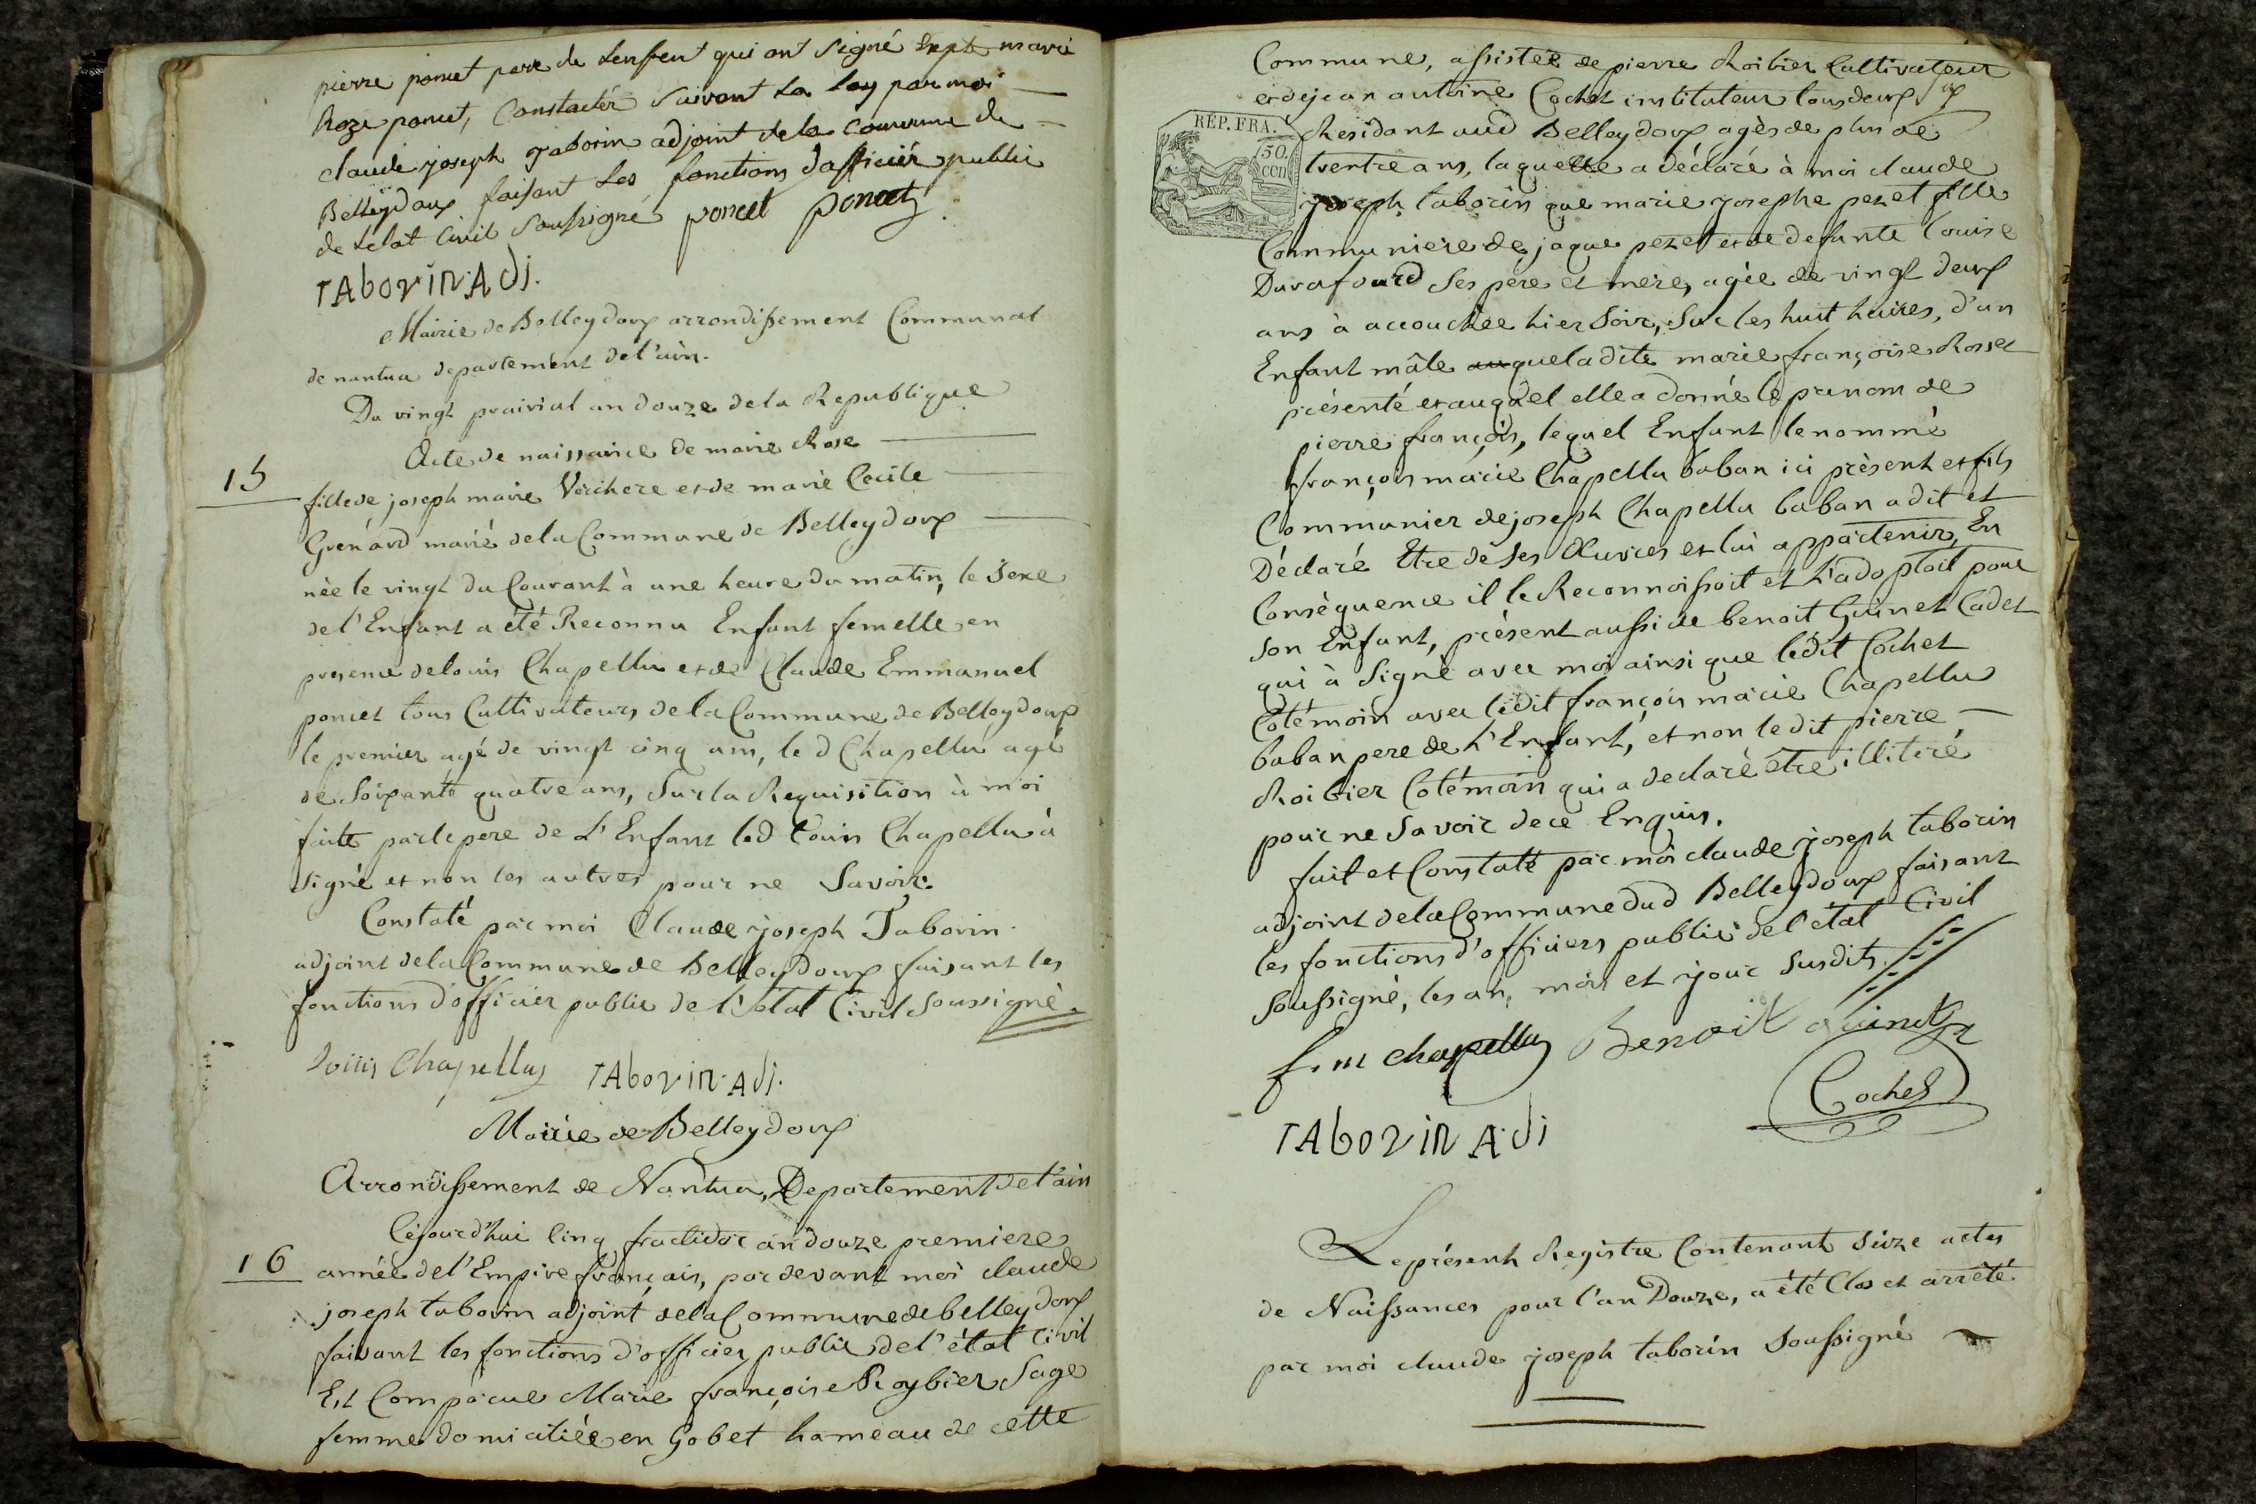 pierre poncet pere de Lenfent qui ont Signé Exptz marie
Roze poncet, Constactér Suivant La loy par moi
claude joseph taborin adjoint de la commune de
Belleÿdoux faisant Les fonctions d'afficiér public
de Letat Civil Soussigné poncet poncet
TAborin Adj.
Mairie de Belleydoux arrondissement Communal
de nantua departement de l'ain.
Du vingt prairial an douze de la Republique
Acte de naissance de marie Rose
15
fille de joseph marie Verchere et de marie Cecile
Grenard marié de la Commune de Belleydoux
née le vingt du Courant à une heure du matin, le Sexe
de l'Enfant a été Reconnu Enfant femelle en
presence de louis Chapellu et de Claude Emmanuel
poncet tous Cultivateurs de la Commune de Belleydoux
le premier agé de vingt cinq ans, le d Chapellu agé
de Soixante quatre ans, Sur la Requisition à moi
faite par le pere de L'Enfant led Louis Chapellu à
signé et non les autres pour ne Savoir.
Constaté par moi Claude joseph Taborin
adjoint de la Commune de Belleydoux faisant les
fonctions d'officier public de l'état Civil Soussigné.
Louis Chapellu TAborin Adj.
Mairie de Belleydoux
Arrondissement de Nantua, Departement de l'ain
Cejourd'hui Cinq fructidor an douze premiere
16
année de l'Empire français, par devant moi claude
joseph taborin adjoint de la Commune de belleydoux
faisant les fonctions d'officier public de l'état Civil
Est Comparue Marie françoise Roybier Sage
femme domiciliée en Gobet hameau de cette
Commune, assistée de pierre Roibier Cultivateur
et de jean antoine Cochet instituteur tous deux
RÉP. FRA.
50.
CEN
Residant aud Belleydoux agés de plus de
trentre ans, laquelle a déclaré à moi claude
joseph taborin que marie josephe peret fille
Communiere de jaque peret et de defunte Louise
Durafourd Ses pere et mere, agée de vingt deux
ans à accouchée hier Soir, Sur les huit heures, d'un
Enfant mâle que ladite marie françoise Rosset
présenté et auquel elle a donné le prenom de
pierre françois, lequel Enfant le nommé
françois marie Chapellu baban ici présent et fils
Communier de joseph Chapellu baban a dit et
Déclaré Etre de Ses Œuvres et lui appartenir, En
Conséquence il le Reconnoissoit et L'adoptoit pour
Son Enfant, présent aussi de benoit Guinet Cadet
qui à Signé avec moi ainsi que ledit Cochet
Cotémoin avec ledit françois marie Chapellu
baban pere de L'Enfant, et non ledit pierre
Roibier Cotémoin qui a declaré être illiteré
pour ne Savoir de ce Enquis.
fait et Constaté par moi claude joseph taborin
adjoint de la Commune dud Belleydoux faisant
les fonctions d'officiers public de l'état Civil
Soussigné, les an, mois et jour Susdits.
f. m chapellu Benoit guinet
Cochet
TAborin Adj
Le présent Registre Contenant Seize actes
de Naissances pour l'an Douze, a été Clos et arrêté
par moi claude joseph taborin Soussigné